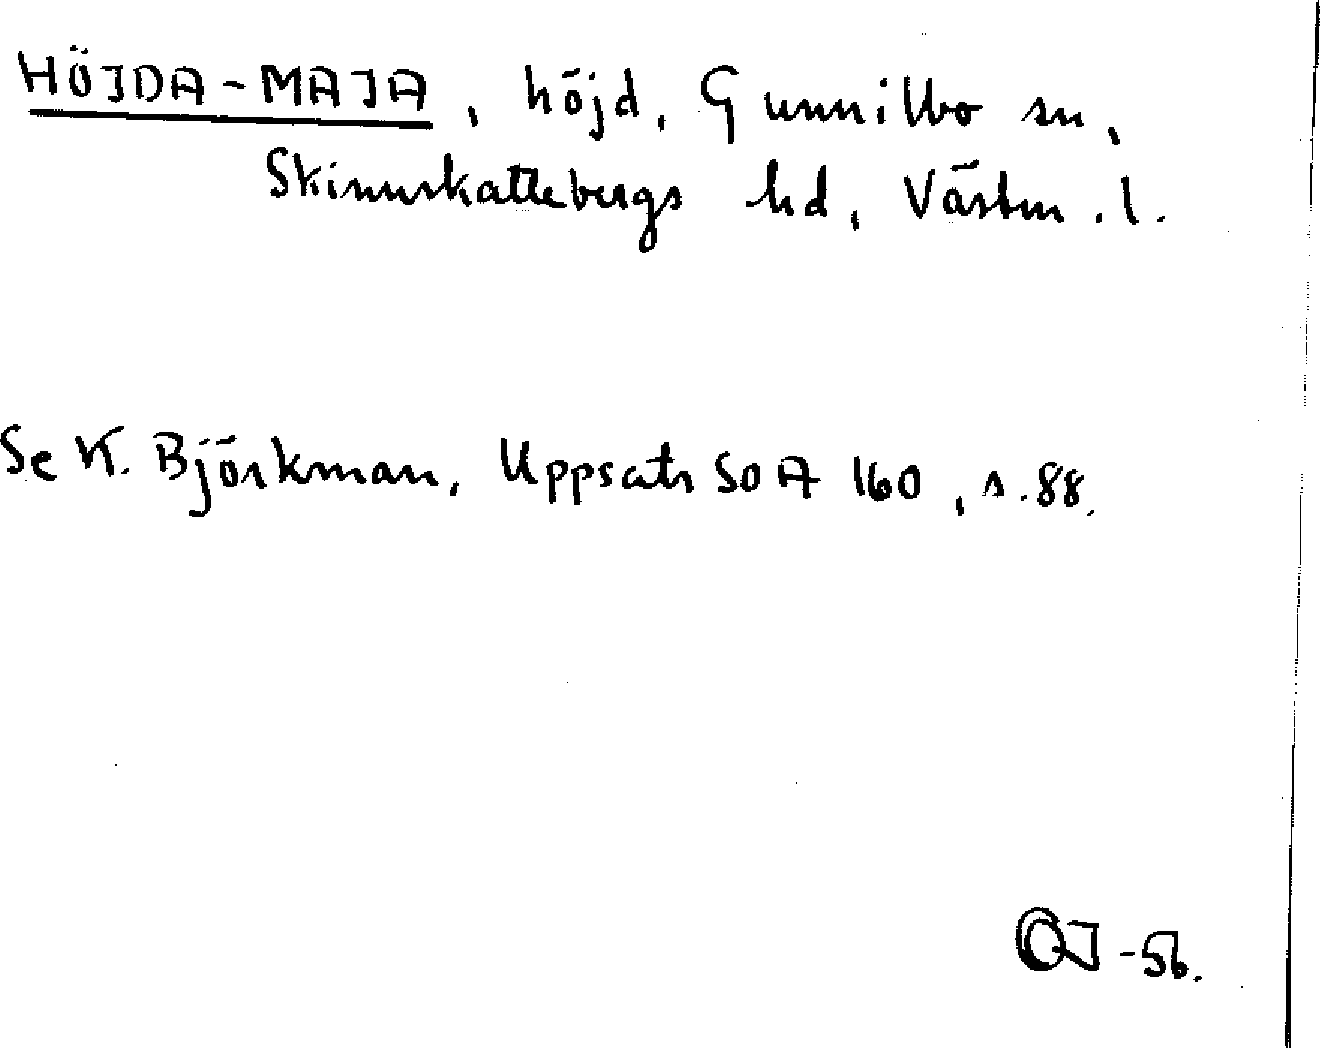 HÖJDA-MAJA, höjd, Gunnilbo sn,
Skinnskattebergs hd, Västm.l.
Se K. Björkman, Uppsats SOA 160, s.88.
OJ -56.